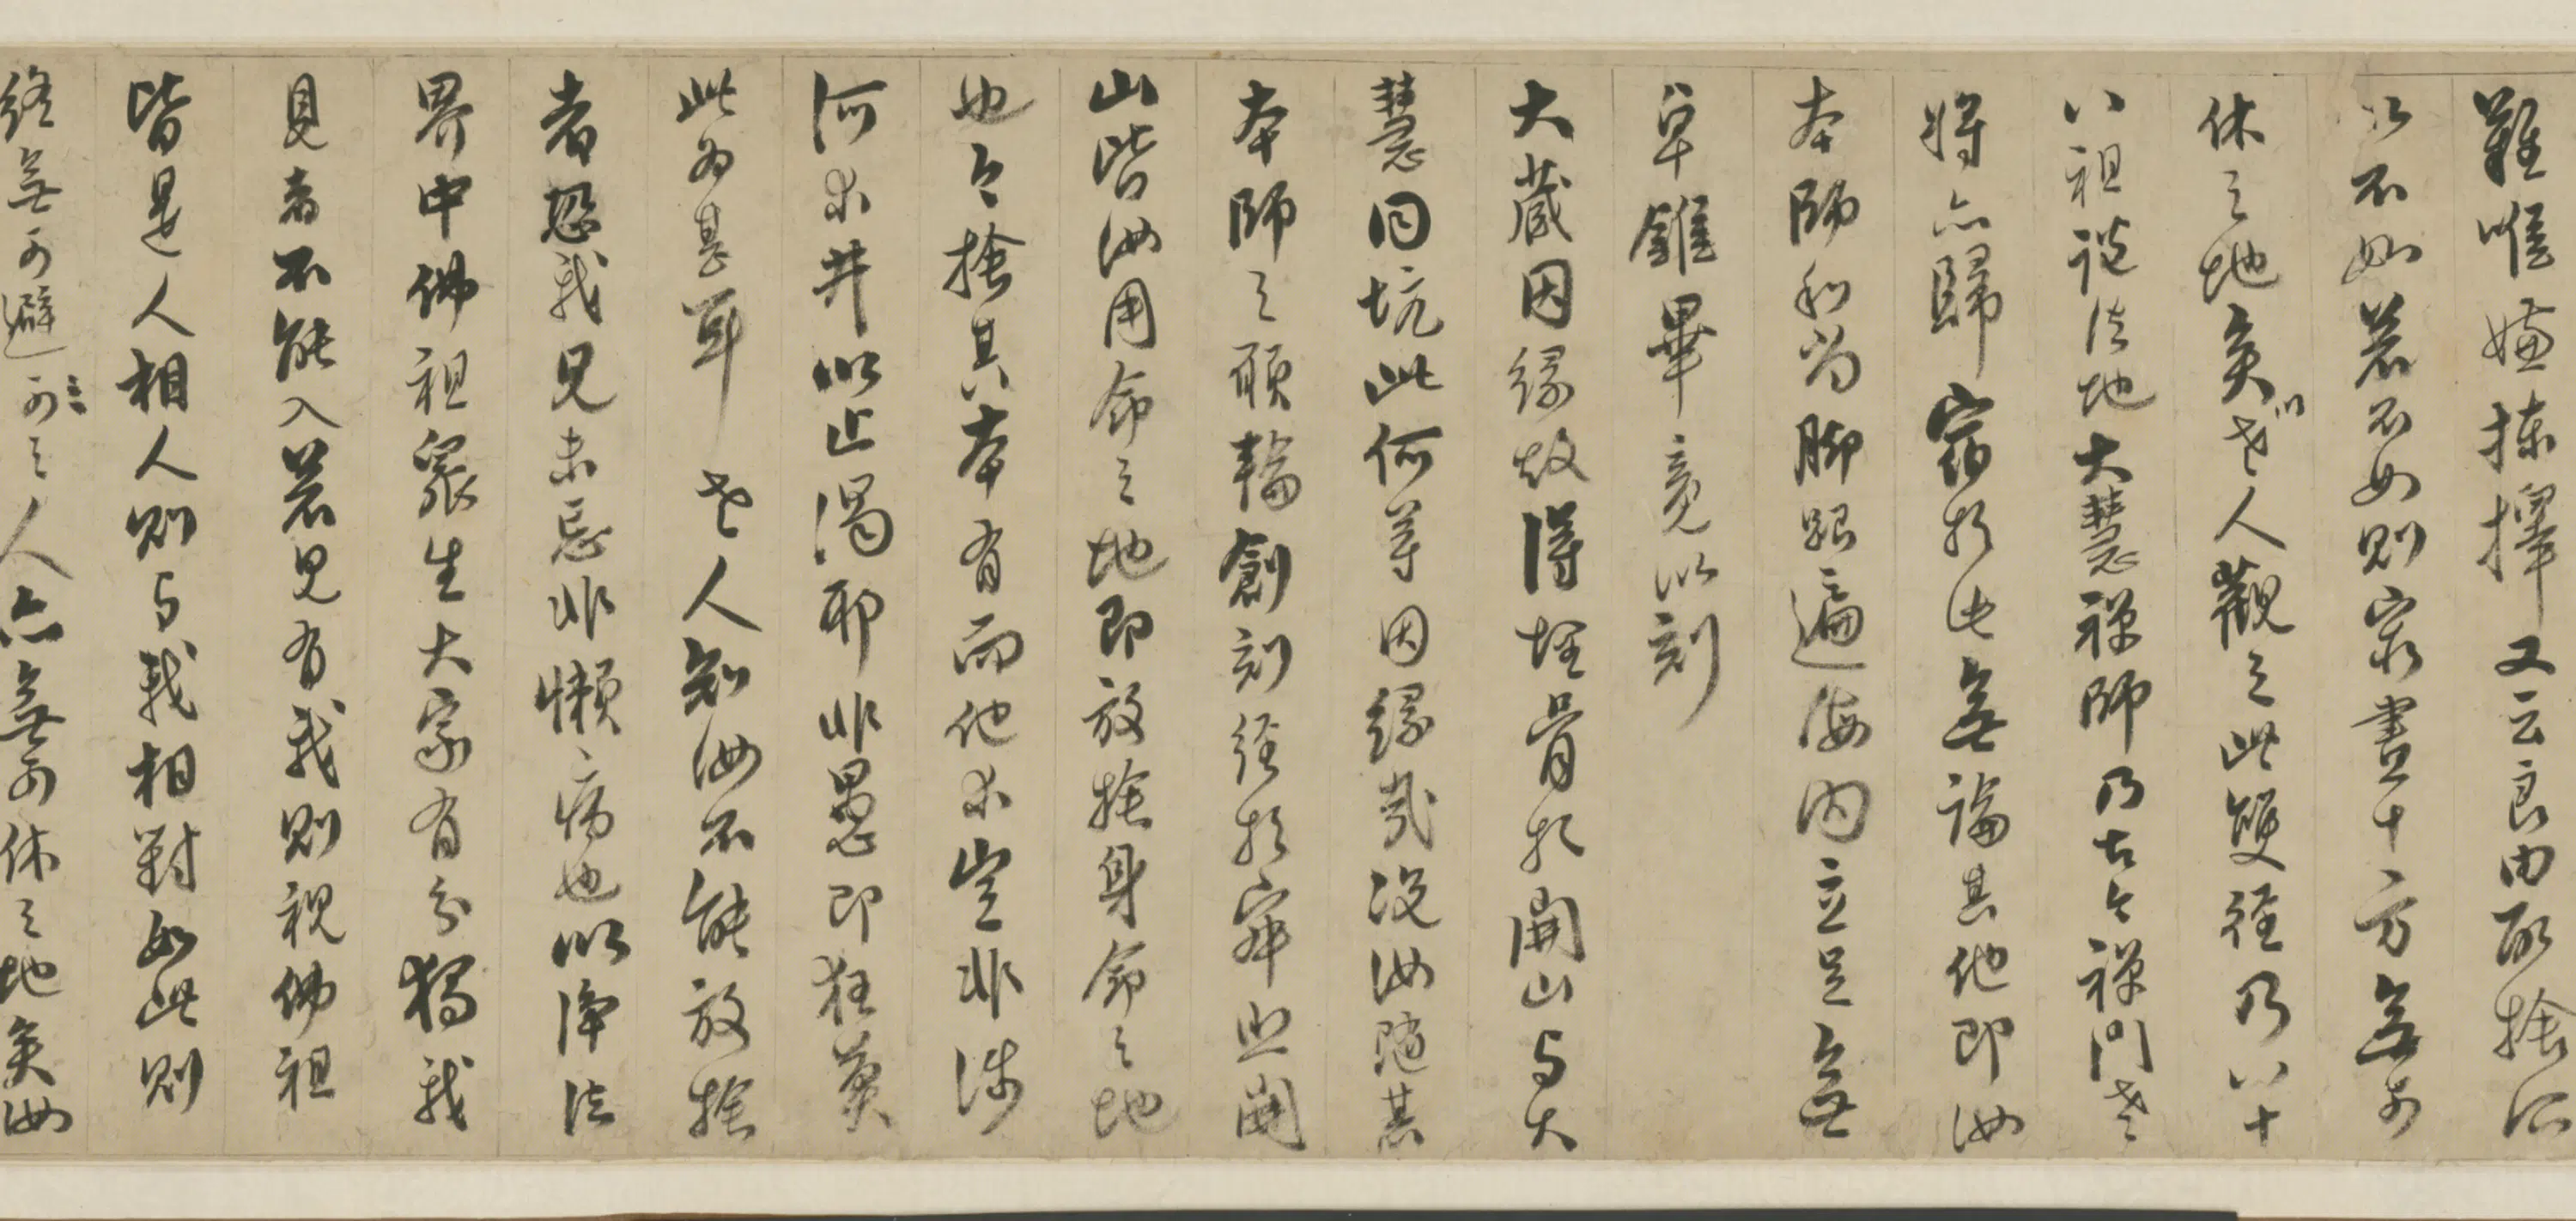 難唯嫌揀擇又云良由取捨所
以不如若不如則家盡十方無可
休之地矣以老人觀之此雙徑乃八十
八祖說法地大慧禪師乃古今禪門老
將亦歸宿於此無論其他即汝
本師和尚腳跟遍海內立足無
卓錐畢竟以刻
大藏因緣故得埋骨於開山與大
慧同坑此何等因緣哉汝隨其
本師之願輪創刻經於寂照開
山皆汝用命之地即放捨身命之地
也今捨其本有而他求豈非涉
河求井以止渴耶非愚即狂莫
此為甚耳老人知汝不能放捨
者恐我見未忘非懶病也以淨法
界中佛祖眾生大家有分獨我
見者不能入若見有我則視佛祖
皆是人相人則與我相對如此則
終無可避之人亦無可休之地矣汝